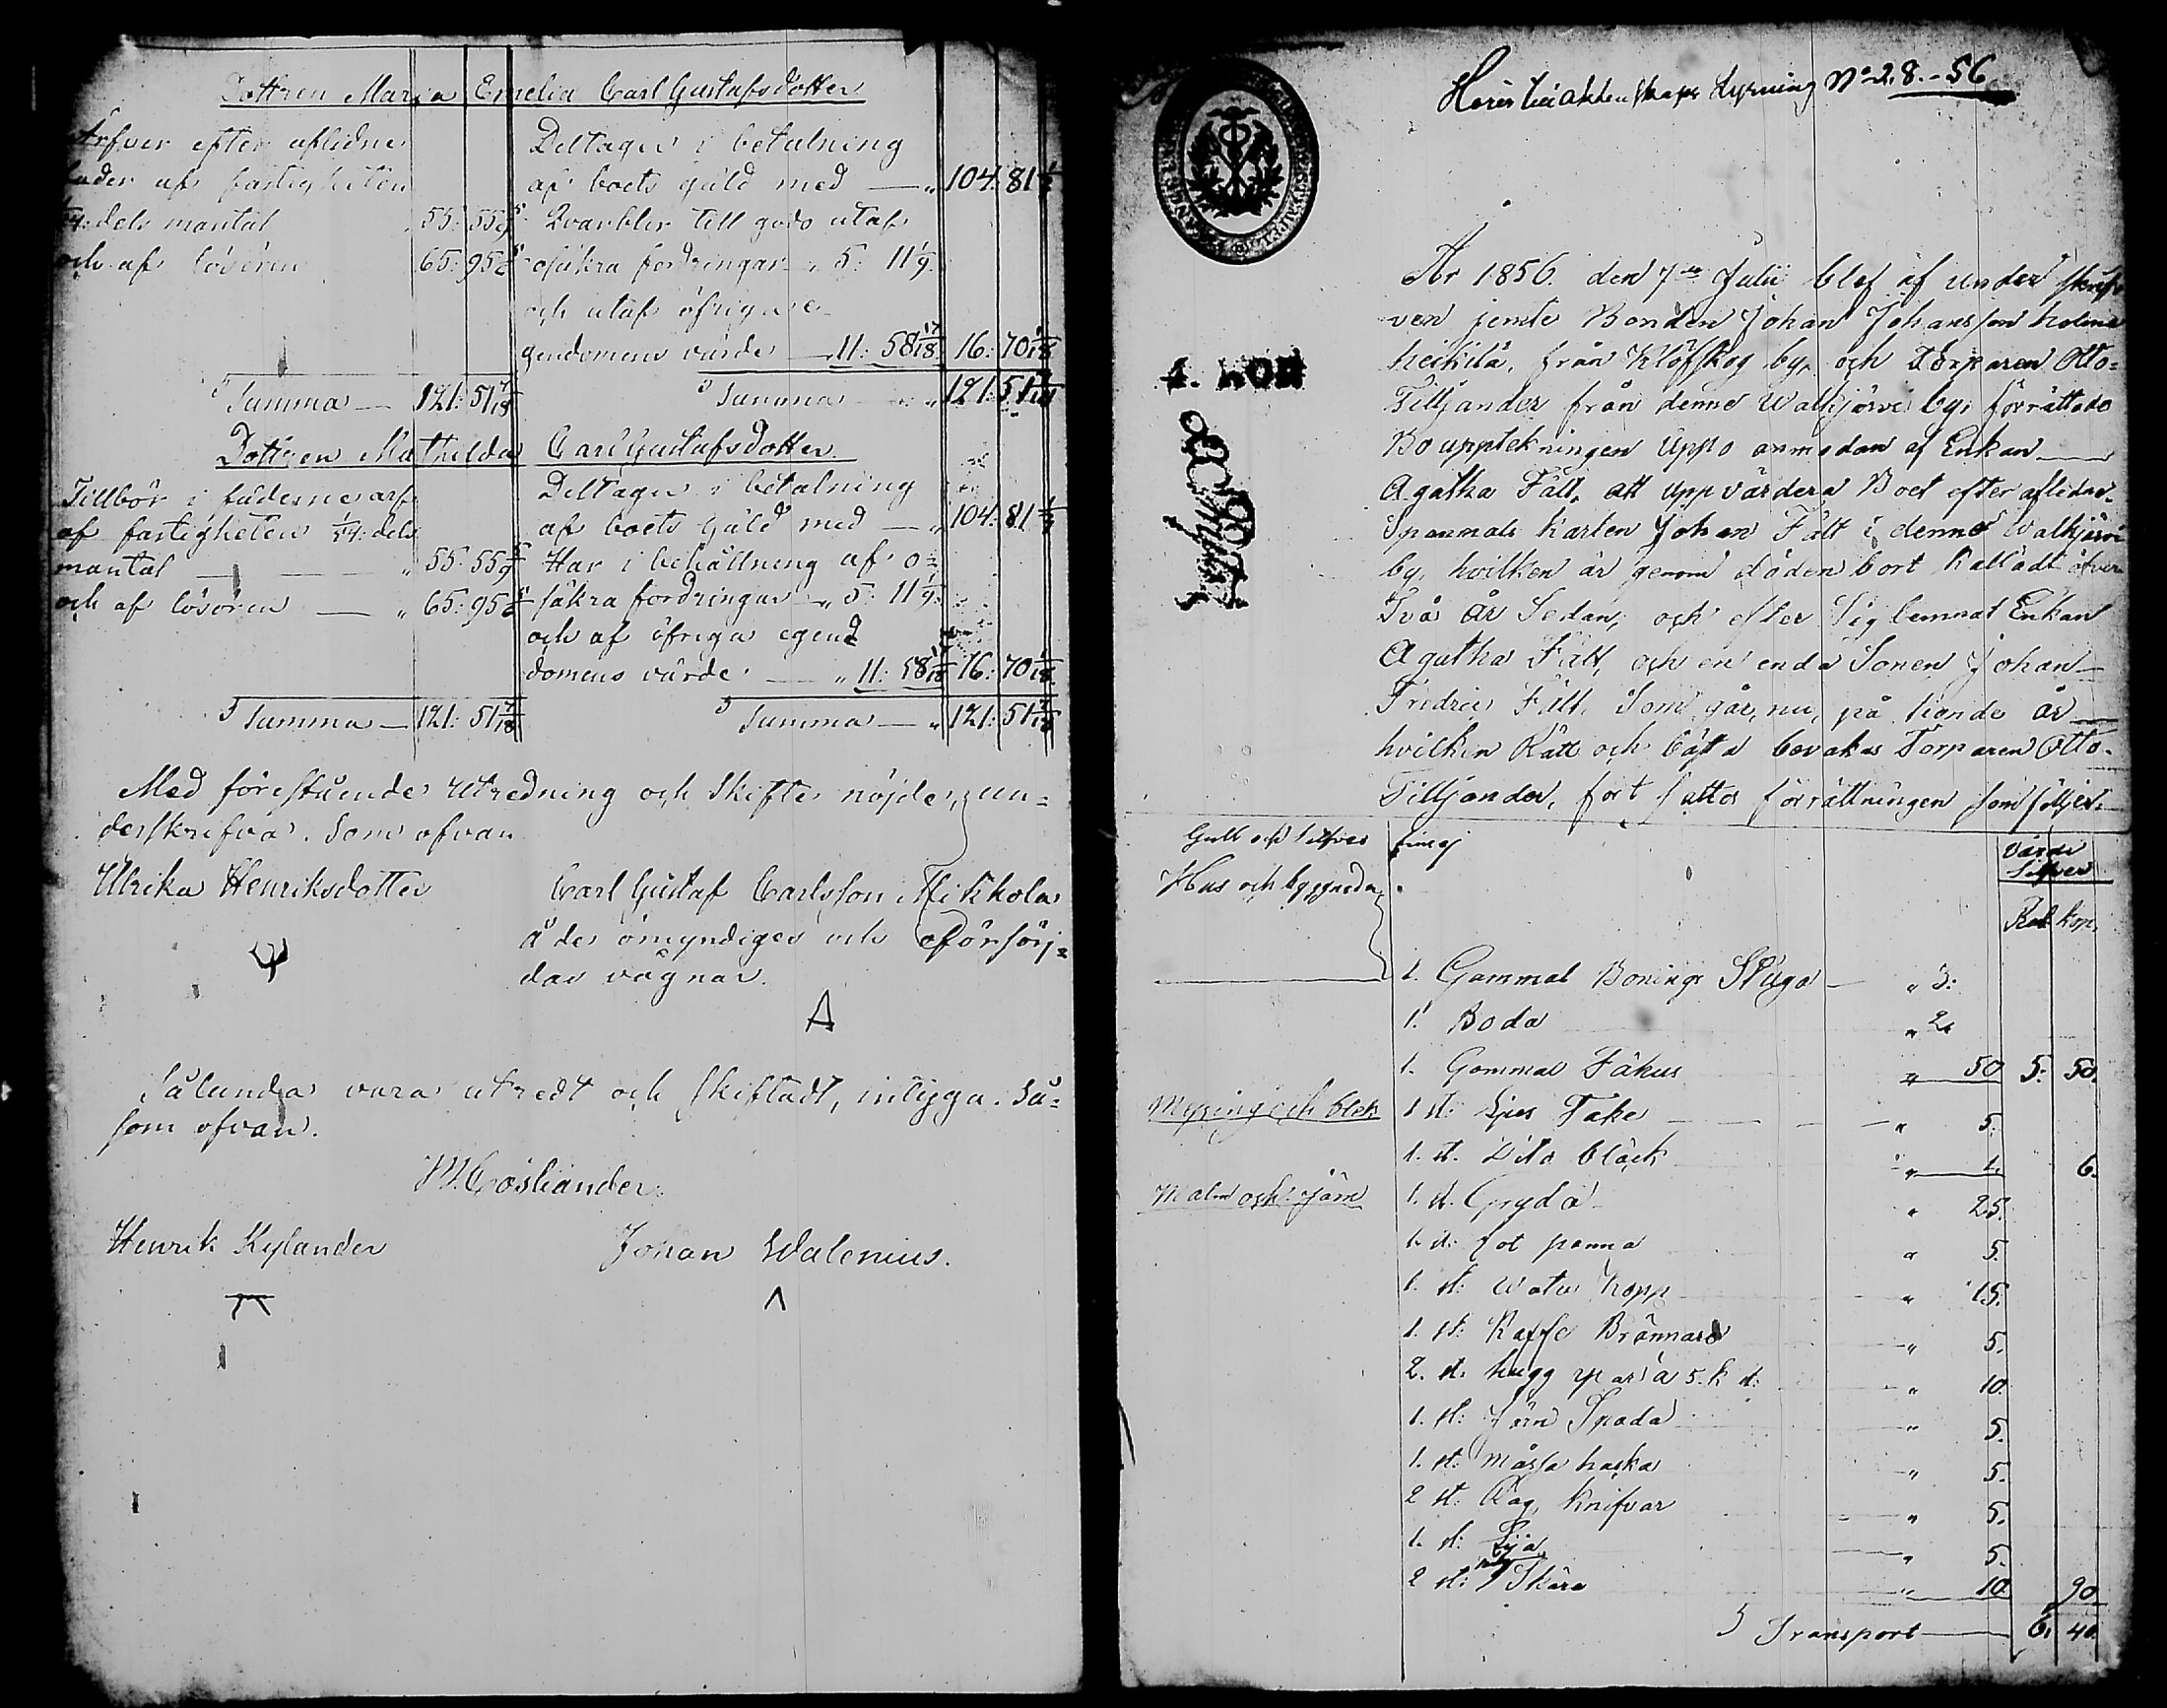 Dottren Maria Emelia Carl Gustafsdotter
Ärfver efter aflidne
fader af fastigheten
1/24: dels mantal 55: 55 5/9
och af lösören 65: 95 5/6
Summa 121: 51 7/18
Deltager i betalning
af boets gäld med 104: 81 1/3
Qvarblir till godo utaf
osäkra fordringar 5: 11 1/9.
och utaf öfriga e-
gendomens värde 11: 58 17/18. 16: 70 1/18
Summa 121: 51 7/18
Dottren Mathilda Carl Gustafsdotter
Tillbör i fädernearf
af fastigheten 1/24: dels
mantal 55: 55 5/9
och af lösören 65: 95 5/6
Summa 121: 51 7/18
Deltager i betalning
af boets gäld med 104: 81 1/3
Har i behållning af o=
säkra fordringar 5: 11 1/9:
och af öfriga egen=
domens värde 11: 58 17/18 16: 70 1/18
Summa 121: 51 7/18
Med förestående utredning och skifte nöjde, un=
derskrefva. Som ofvan
Ulrika Henriksdotter
Carl Gustaf Carlsson Mikkola
å de omyndiges och oförsörj=
das vägnar.
A
Sålunda vara utredt och skiftadt, intyga. Så=
som ofvan.
Henrik Kylander
Johan Walenius.
Hörer till äktenskaps Lysning No 28.-56
År 1856. den 7de Julii blef af under skrif
ven jemte Bonden Johan Johansson
från Klöfskog by, och Torparen Otto=
Tilljander från denne Walkjärvi by, förrättade
Boupptekningen Uppo anmodan af Enkan
Agatha Fält, att uppvärdera Boet efter aflidne
Spanmals Karlen Johan Fält i denne Walkjärvi
by, hvilken är genom döden bort kalladt öfver
Två år Sedan, och efter Sig lemnat Enkan
Agatha Fält, och en enda Sonen Johan
Fredric Fält, Som går, nu, på tionde år
hvilken Rätt och bästa bevakas Torparen Otto.
Tilljander, fort sattes förrättningen som följer.
Gull och silfver fins ej
Värde
Silfver
Rub kop.
Hus och byggnader
1. Gammal Bonings Stuga " 3:
1. Boda " 2.
1. Gammal Fähus " 50 5: 50.
Messing och blek 1 st: Ljus Stake " 5.
1. st. Dito bläck " 1. 6.
Malm och järn 1. st. Gryda " 25.
1. st: fot panna " 5.
1. st: Watu kopp " 15.
1. st: Kaffe Brännare " 5.
2. st. hugg yxar à 5. k st: " 10.
1. st: Järn Spada " 5.
1. st: måssa hacka " 5.
2 st: Rag, Knifvar " 5.
1. st: Lija " 5.
2 st: Skära " 10 90
Transport 6. 46.